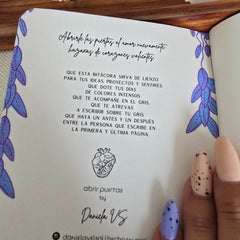 Abrirle las puertas al amor nuevamente
hazaña de corazones valientes.
QUE ESTA BITÁCORA SIRVA DE LIENZO
PARA TUS IDEAS, PROYECTOS Y SENTIRES
QUE DOTE TUS DÍAS
DE COLORES INTENSOS
QUE TE ACOMPAÑE EN EL GRIS,
QUE TE ATREVAS
A ESCRIBIR SOBRE TU GRIS
QUE HAYA UN ANTES Y UN DESPUÉS
ENTRE LA PERSONA QUE ESCRIBE EN
LA PRIMERA Y ÚLTIMA PÁGINA.
abrir puertas
by
Daniela VS